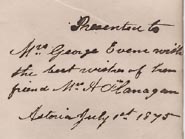 Presented to
Mrs George Evens with
the best wishes of her
friend Mrs H O'Flanagan
Astoria July 1st 1875